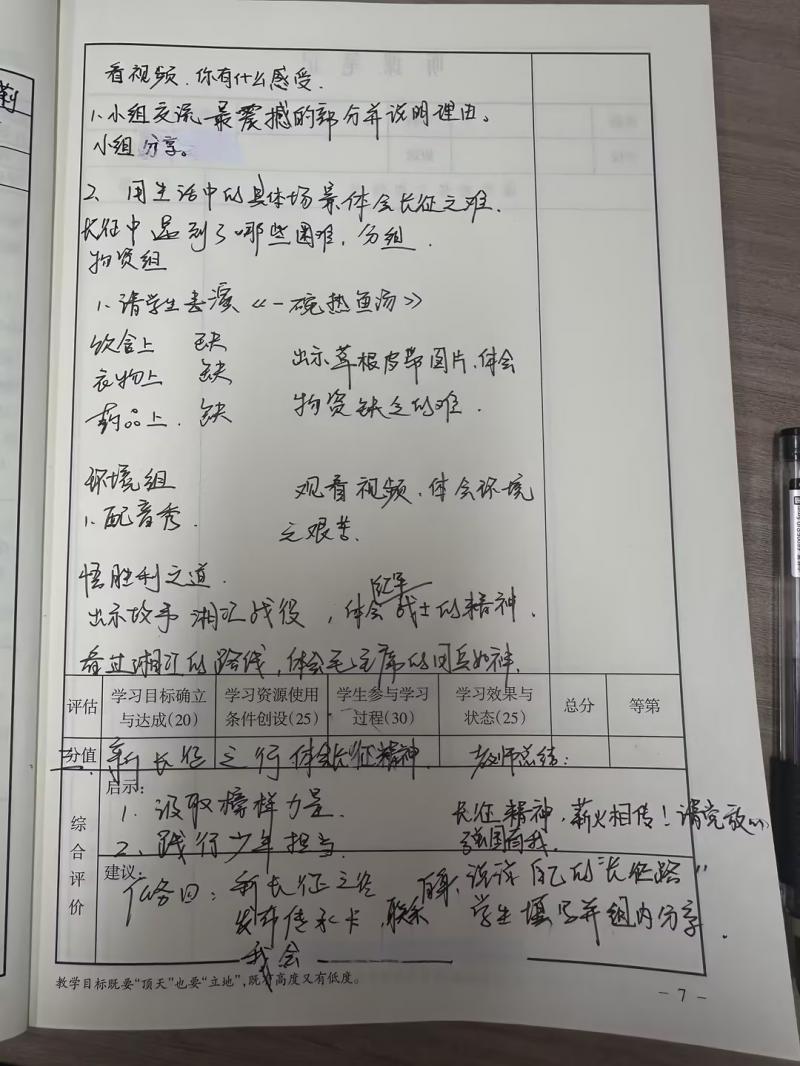 看视频，你有什么感受.
1. 小组交流 最震撼的部分并说明理由。
小组分享。
2. 用生活中的具体场景体会长征之难.
长征中遇到了哪些困难，分组.
物资组
1. 请学生表演《一碗热鱼汤》
饮食上 缺
衣物上 缺 出示草根皮带图片，体会
药品上. 缺 物资缺乏的难.
环境组 观看视频，体会环境
1. 配音秀. 之艰苦.
悟胜利之道.
红军
出示故事 湘江战役，体会战士的精神.
看过湘江的路线，体会毛主席的用兵如神.
评估 学习目标确立与达成(20) 学习资源使用条件创设(25) 学生参与学习过程(30) 学习效果与状态(25) 总分 等第
分值
三、新长征之行 体会长征精神. 教师总结：
综合评价
启示：
1. 汲取榜样力量. 长征精神，薪火相传！请党放心
2. 践行少年担当. 强国有我.
建议：
任务四：新长征之路 说说自己的"长征路"
发布传承卡，联系 学生填写并组内分享.
我会
教学目标既要"顶天"也要"立地"，既有高度又有低度。
- 7 -